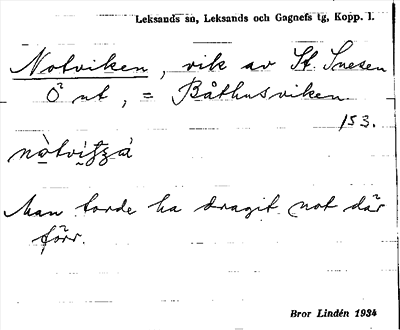 Leksands sn, Leksands och Gagnefs tg, Kopp. l.
Notviken, vik av St. Snesen
Ö nt, = Båthusviken
153.
Man torde ha dragit not där
förr.
Bror Lindén 1934